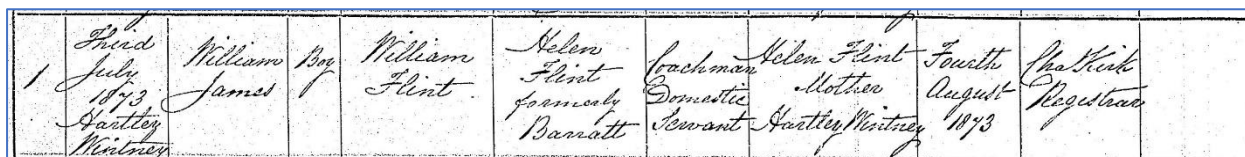 1
Third
July
1873
Hartley
Wintney
William
James
Boy
William
Flint
Helen
Flint
formerly
Barratt
Coachman
Domestic
Servant
Helen Flint
Mother
Hartley Wintney
Fourth
August
1873
Cha Kirk
Registrar